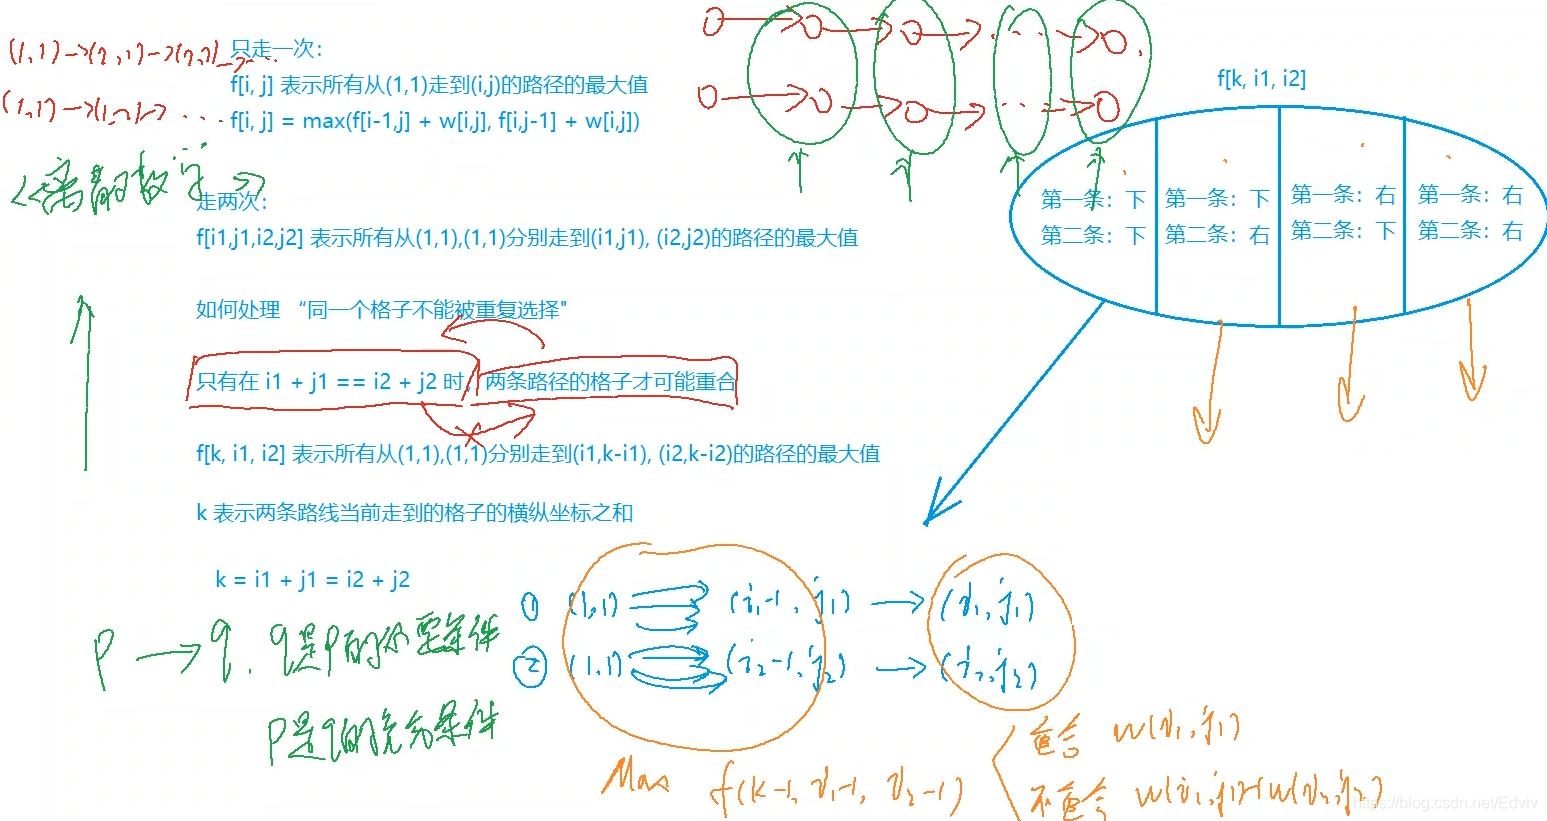 (1,1)→(2,1)→(2,2)→...
只走一次：
f[i, j] 表示所有从(1,1)走到(i,j)的路径的最大值
(1,1)→(1,2)→...
f[i, j] = max(f[i-1,j] + w[i,j], f[i,j-1] + w[i,j])
<<离散数学>>
走两次：
f[i1,j1,i2,j2] 表示所有从(1,1),(1,1)分别走到(i1,j1), (i2,j2)的路径的最大值
如何处理 “同一个格子不能被重复选择"
只有在 i1 + j1 == i2 + j2 时，两条路径的格子才可能重合
f[k, i1, i2] 表示所有从(1,1),(1,1)分别走到(i1,k-i1), (i2,k-i2)的路径的最大值
k 表示两条路线当前走到的格子的横纵坐标之和
k = i1 + j1 = i2 + j2
p → q. q是p的必要条件
p是q的充分条件
f[k, i1, i2]
第一条：下 第一条：下 第一条：右 第一条：右
第二条：下 第二条：右 第二条：下 第二条：右
① (1,1) (i₁-1, j₁) → (i₁, j₁)
② (1,1) (i₂-1, j₂) → (i₂, j₂)
Max f(k-1, i₁-1, i₂-1)
重合 w(i₁, j₁)
不重合 w(i₁, j₁)+w(i₂, j₂)
https://blog.csdn.net/Edviv